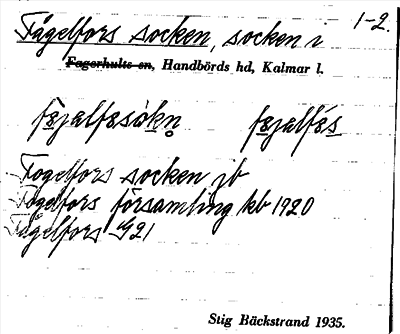 1-2.
Fågelfors socken, socken i
Fagerhults sn, Handbörds hd, Kalmar l.
Fogelfors socken jb
Fogelfors församling kb 1920
Fågelfors G21
Stig Bäckstrand 1935.